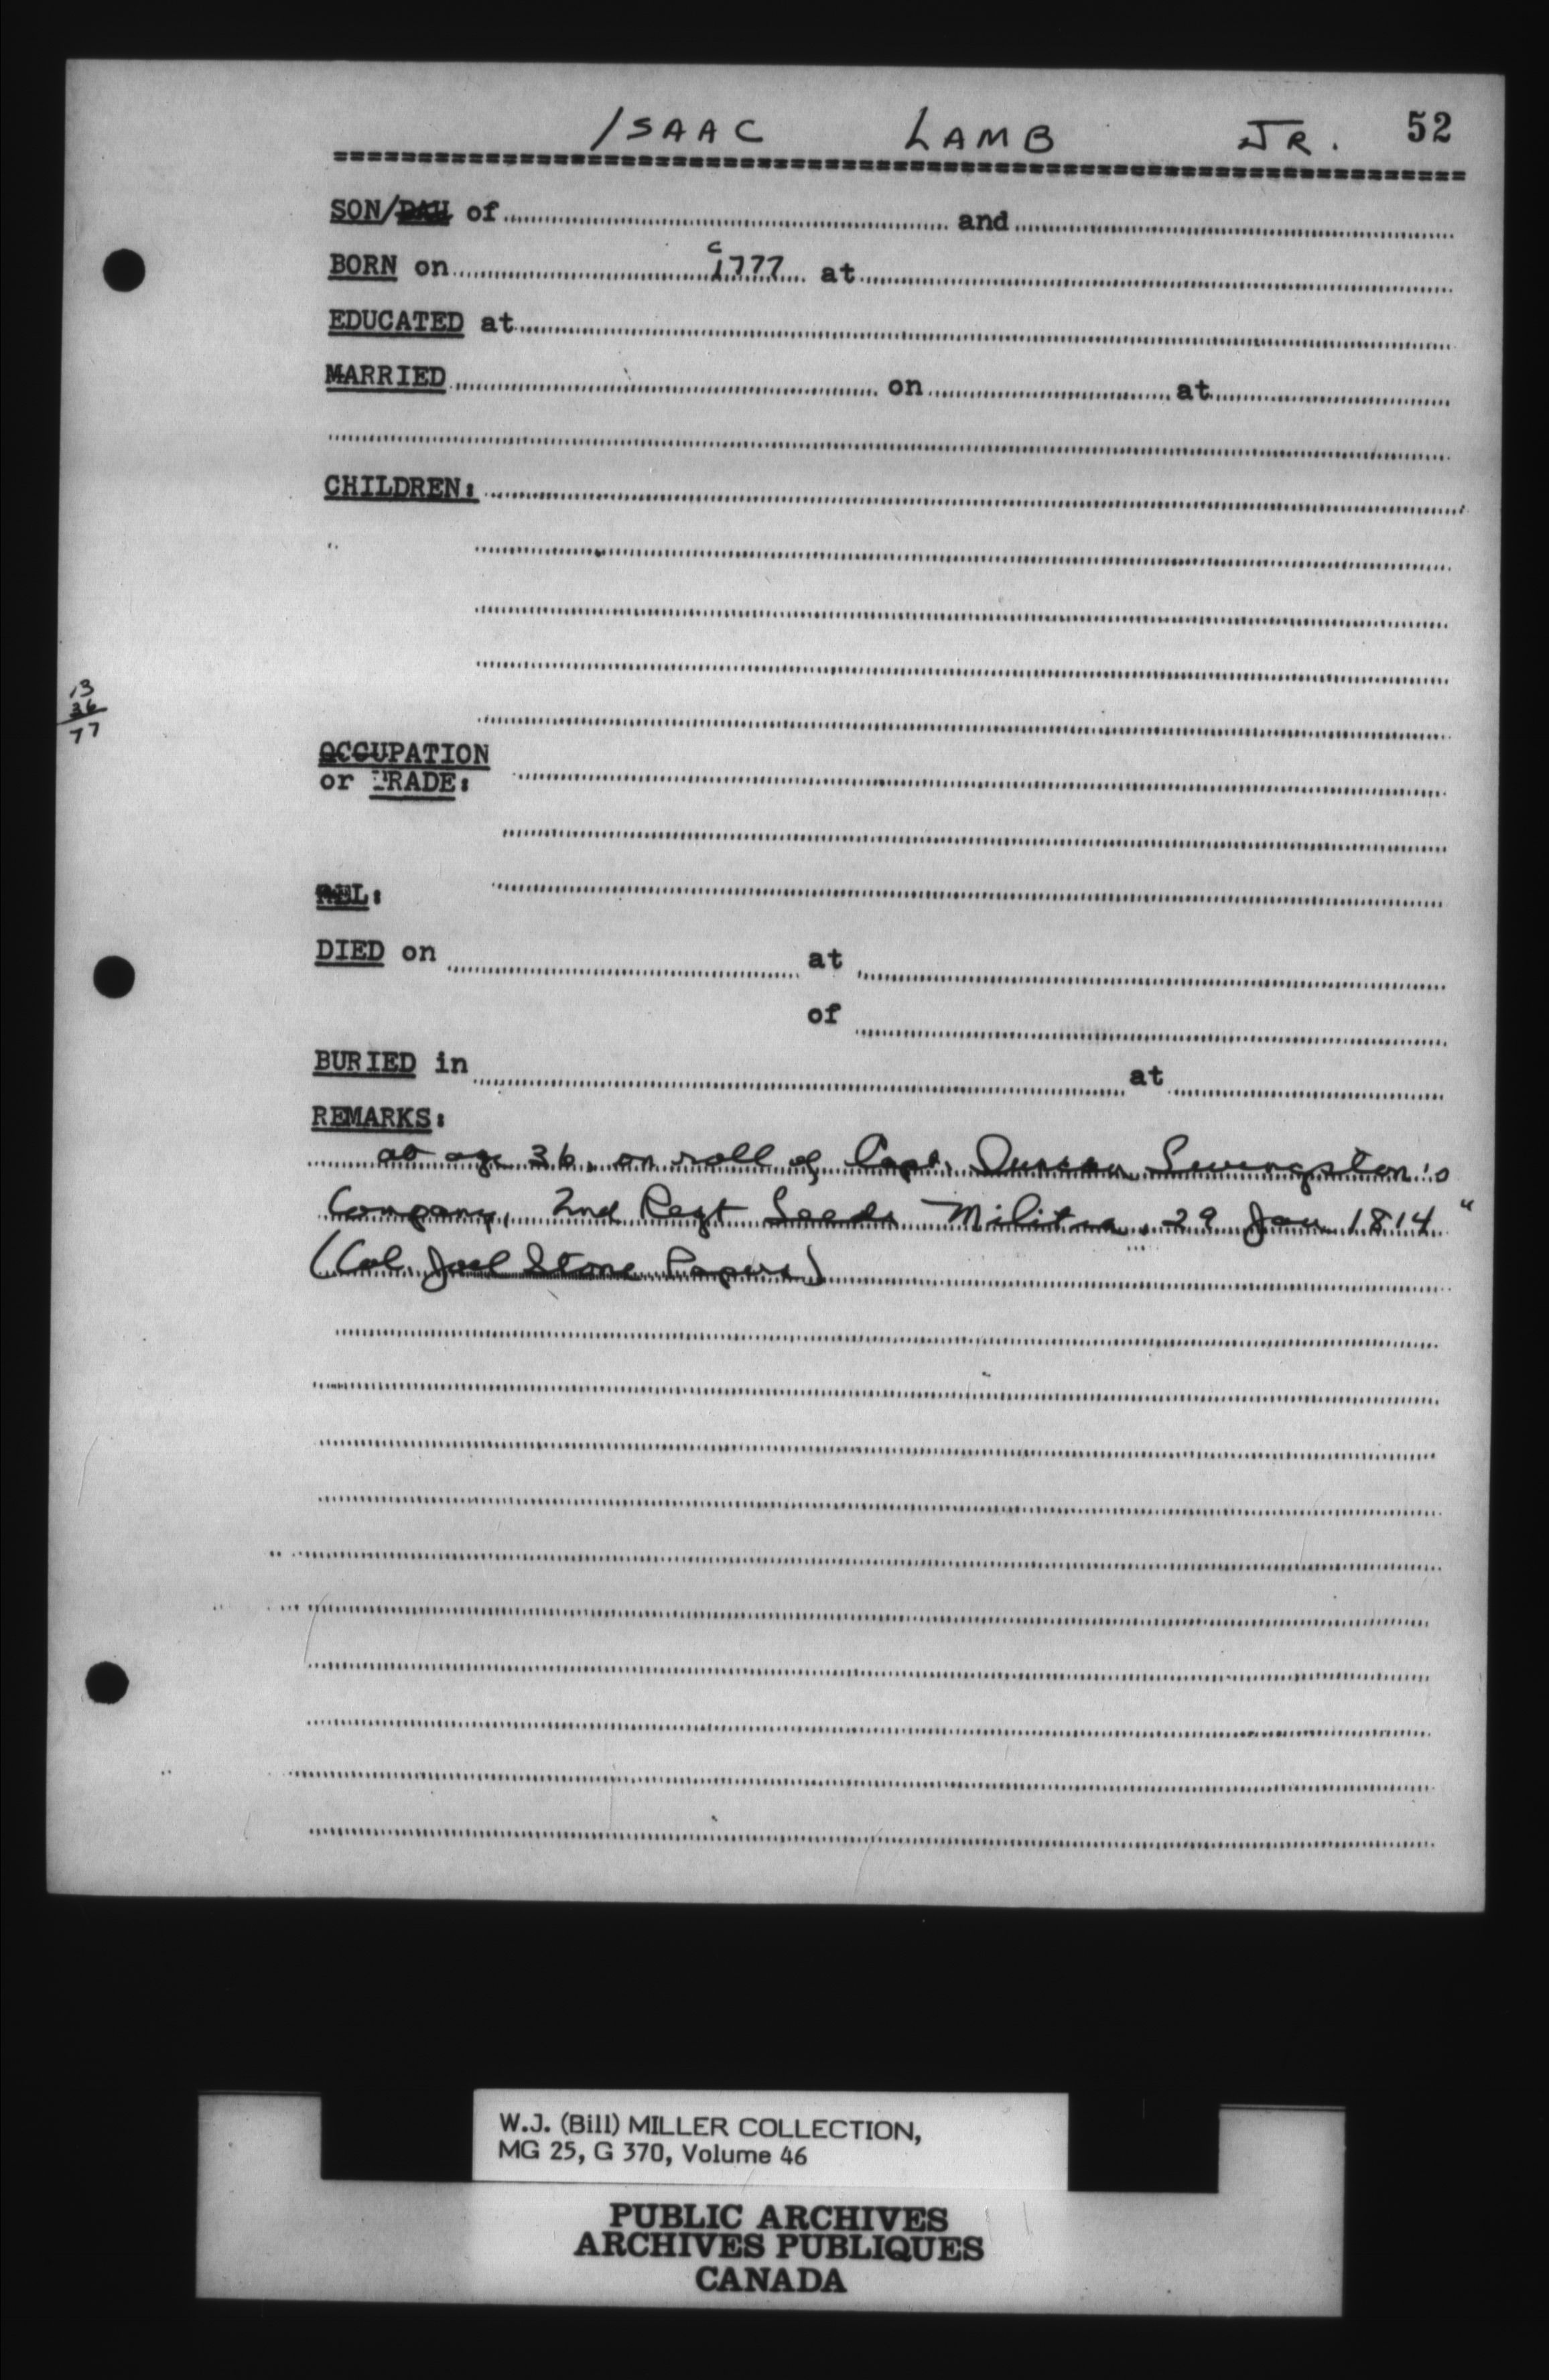 ISAAC LAMB JR. 52
SON/DAU of and
BORN on c 1777 at
EDUCATED at
MARRIED on at
CHILDREN:
13
36
77
OCCUPATION
or TRADE:
REL:
DIED on at
of
BURIED in at
REMARKS:
at age 36, on roll of Capt. Duncan Livingston's
Company, 2nd Regt Leeds Militia, 29 Jan 1814"
(Col. Joel Stone Papers)
W.J. (Bill) MILLER COLLECTION,
MG 25, G 370, Volume 46
PUBLIC ARCHIVES
ARCHIVES PUBLIQUES
CANADA